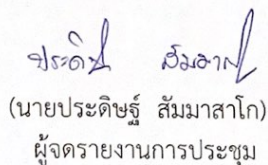 ประดิษฐ์ สัมมาสาโก
(นายประดิษฐ์ สัมมาสาโก)
ผู้จดรายงานการประชุม